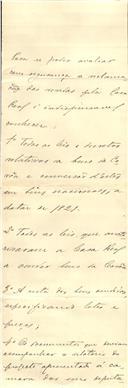 Para se poder avaliar
com segurança a
das rendas pela Casa
Real é indispensavel
conhecer:
1º Todas as leis e decretos
relativos a bens da Co-
rôa e conversão d'estes
em bens nacionaes, a
datar de 1821.
2º Todas as leis que auto-
risaram a Casa Real
a
3º A nota dos bens
especificando lotes e
preços;
4º Os documentos que deviam
acompanhar o relatorio do
projecto apresentado á ca-
mara dos snrs deputa